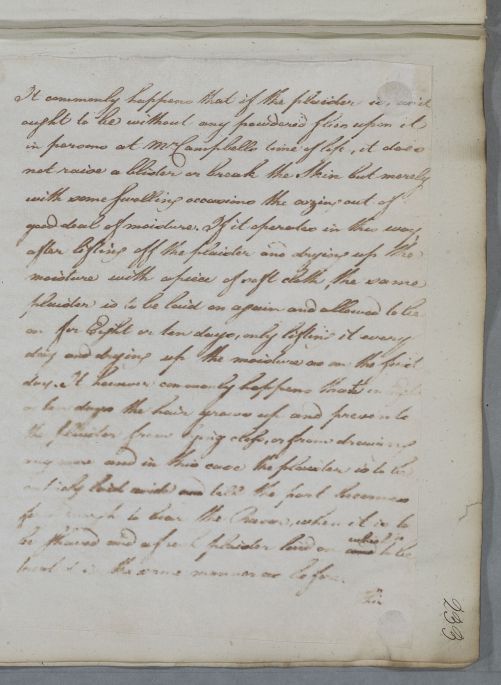 It commonly happens that if the plaister is, as it
ought to be without any powdered flies upon it
in persons at Mr Campbells time of life, it does
not raise a blister or break the Skin but merely
with some swelling occasions the oozing out of
good deal of moisture. If it operates in this way
after lifting off the plaister and drying up the
moisture with a piece of soft cloth the same
plaister is to be laid on again and allowed to be
on for Eight or ten days, only lifting it every
day and drying up the moisture as on the first
day. It however commonly happens that in eight
or ten days the hair grows up and presents
the plaister from lying close, or from drawing
any more and in this case the plaister is to be
entirely laid aside till the part becomes
fit enough to bear the Razor, when it is to
be shaved and a fresh plaister laid on which is to be
in the same manner as before.
233